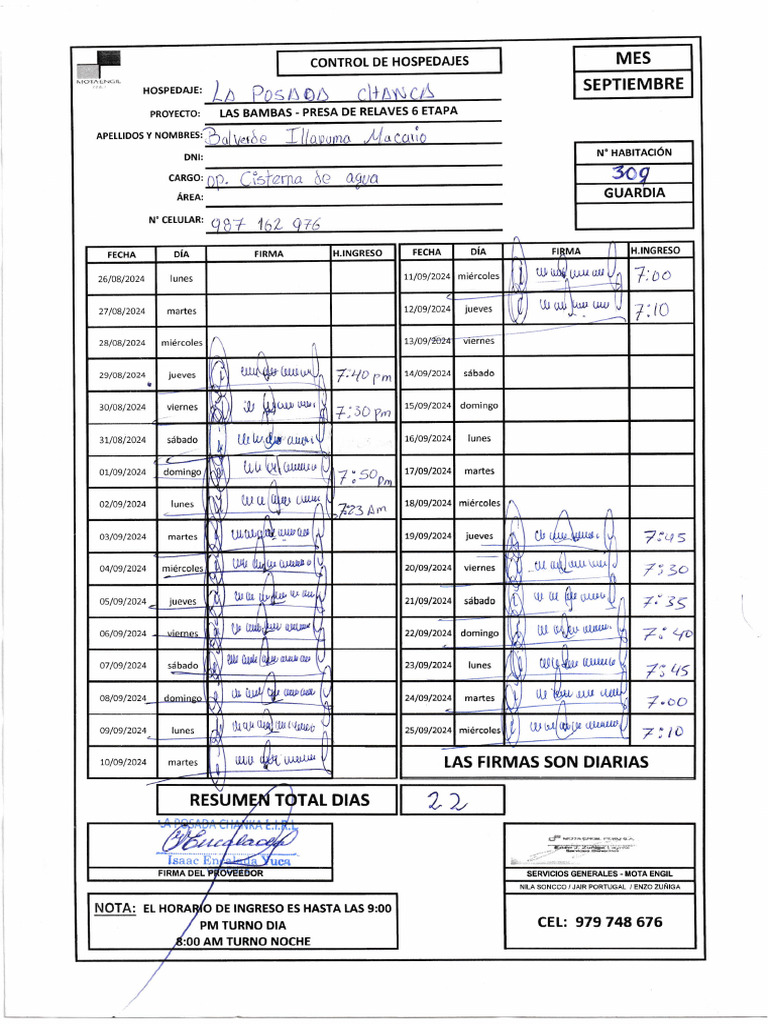 MOTA ENGIL
PERU
CONTROL DE HOSPEDAJES
MES
SEPTIEMBRE
HOSPEDAJE: LA POSADA CHANCA
PROYECTO: LAS BAMBAS - PRESA DE RELAVES 6 ETAPA
APELLIDOS Y NOMBRES: Balverde Illapuma Macario
DNI:
CARGO: op. Cisterna de agua
ÁREA:
N° CELULAR: 987 162 976
N° HABITACIÓN
309
GUARDIA
FECHA DÍA FIRMA H.INGRESO
26/08/2024 lunes
27/08/2024 martes
28/08/2024 miércoles
29/08/2024 jueves 7:40 pm
30/08/2024 viernes 7:30 pm
31/08/2024 sábado
01/09/2024 domingo 7:50 pm
02/09/2024 lunes 7:23 Am
03/09/2024 martes
04/09/2024 miércoles
05/09/2024 jueves
06/09/2024 viernes
07/09/2024 sábado
08/09/2024 domingo
09/09/2024 lunes
10/09/2024 martes
FECHA DÍA FIRMA H.INGRESO
11/09/2024 miércoles 7:00
12/09/2024 jueves 7:10
13/09/2024 viernes
14/09/2024 sábado
15/09/2024 domingo
16/09/2024 lunes
17/09/2024 martes
18/09/2024 miércoles
19/09/2024 jueves 7:45
20/09/2024 viernes 7:30
21/09/2024 sábado 7:35
22/09/2024 domingo 7:40
23/09/2024 lunes 7:45
24/09/2024 martes 7.00
25/09/2024 miércoles 7:10
LAS FIRMAS SON DIARIAS
RESUMEN TOTAL DIAS 22
LA POSADA CHANKA E.I.R.L
Isaac Encalada Yuca
FIRMA DEL PROVEEDOR
MOTA-ENGIL PERU S.A.
SERVICIOS GENERALES - MOTA ENGIL
NILA SONCCO / JAIR PORTUGAL / ENZO ZUÑIGA
CEL: 979 748 676
NOTA: EL HORARIO DE INGRESO ES HASTA LAS 9:00
PM TURNO DIA
8:00 AM TURNO NOCHE